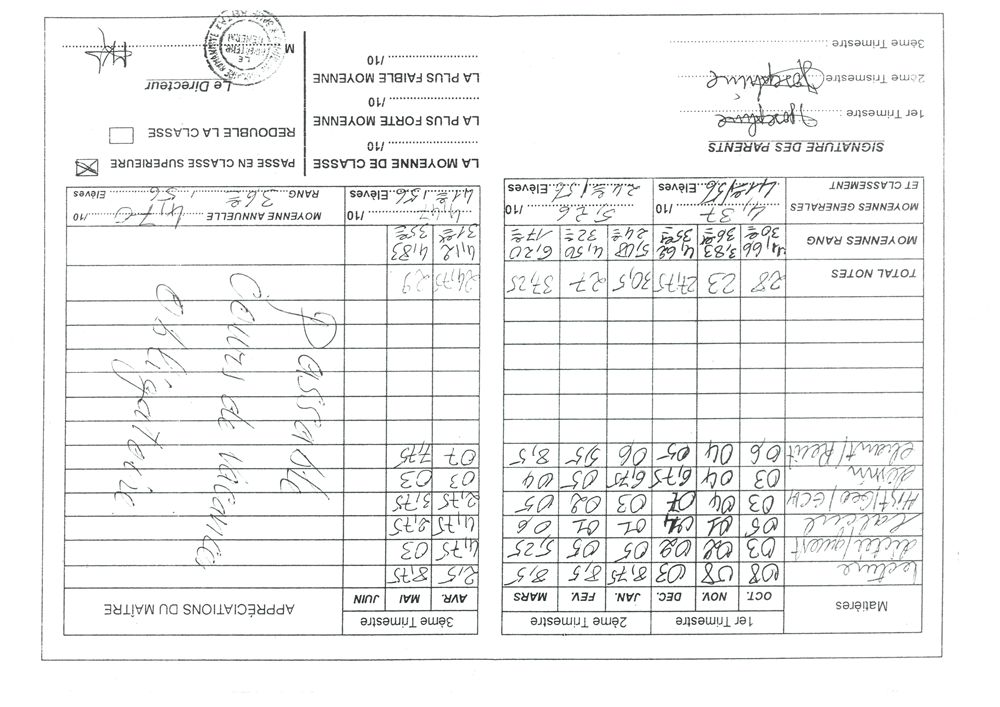 Matières 1er Trimestre 2ème Trimestre 3ème Trimestre APPRÉCIATIONS DU MAÎTRE
OCT. NOV. DEC. JAN. FEV. MARS AVR. MAI JUIN
Lecture 08 08 03 8,75 8,5 8,5 2,5 8,75
dictée/quest 03 02 02 05 05 5,25 4,75 03
Calcul 05 01 01 01 06 4,75 2,75
Hist/Géo/ECM 03 04 07 03 02 05 2,75 3,75
03 04 6,75 6,75 05 04 03 03
chant/Récit 06 04 05 06 5,5 8,5 07 7,75
Passable
Cours de vacances
obligatoire
TOTAL NOTES 28 23 27,75 30,5 27 37,25 24,75 29
MOYENNES RANG 4,66 3,83 4,62 5,08 4,50 6,20 4,12 4,83
30e 36e 35e 24e 32e 17e 31e 35e
MOYENNES GENERALES 4,37 /10 5,26 /10 4,47 /10 MOYENNE ANNUELLE 4,70 /10
ET CLASSEMENT 41e/56 Elèves 24e/56 Elèves 41e/56 Elèves RANG 36e/56 Elèves
SIGNATURE DES PARENTS
1er Trimestre : Joséphine
2ème Trismestre : Joséphine
3ème Trimestre :
LA MOYENNE DE CLASSE
/10
LA PLUS FORTE MOYENNE
/10
LA PLUS FAIBLE MOYENNE
/10
PASSE EN CLASSE SUPERIEURE
REDOUBLE LA CLASSE
Le Directeur
M
LE